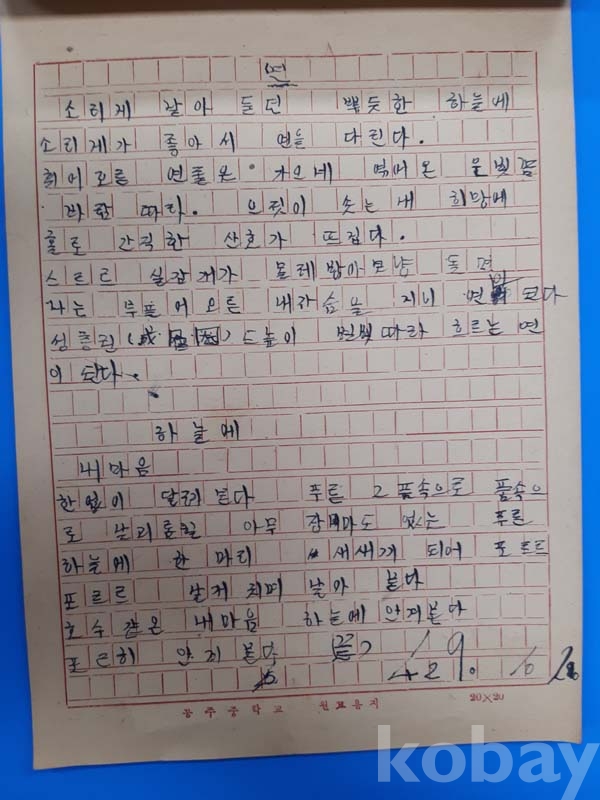 연
소리게 잘아 들던 뿌듯한 하늘에
소리게가 좋아서 연을 다린다.
휘어오를 연줄은 가으네 먹어온 물빛
바람 따라. 으릿이 솟는 내 희망에
홀로 간직한 산호가 뜨겁다.
스르르 실잡개가 물레방아모냥 돌면
나는 부풀어 오른 내가슴을 지나 연이 된다
성층권 드높이 따라 흐르는 연
이 된다.
하늘에
내마음
한없이 달려본다 푸른 그 품속으로 품속으
로 아무 도 없는 푸른
하늘에 한 마리 새새끼 되어 포르르
포르르 날개 치며 날아 본다
호수 같은 내마음 하늘에 안겨본다
포근히 안겨 본다
4 29. 6
공주중학교 원고용지 20×20
kobay